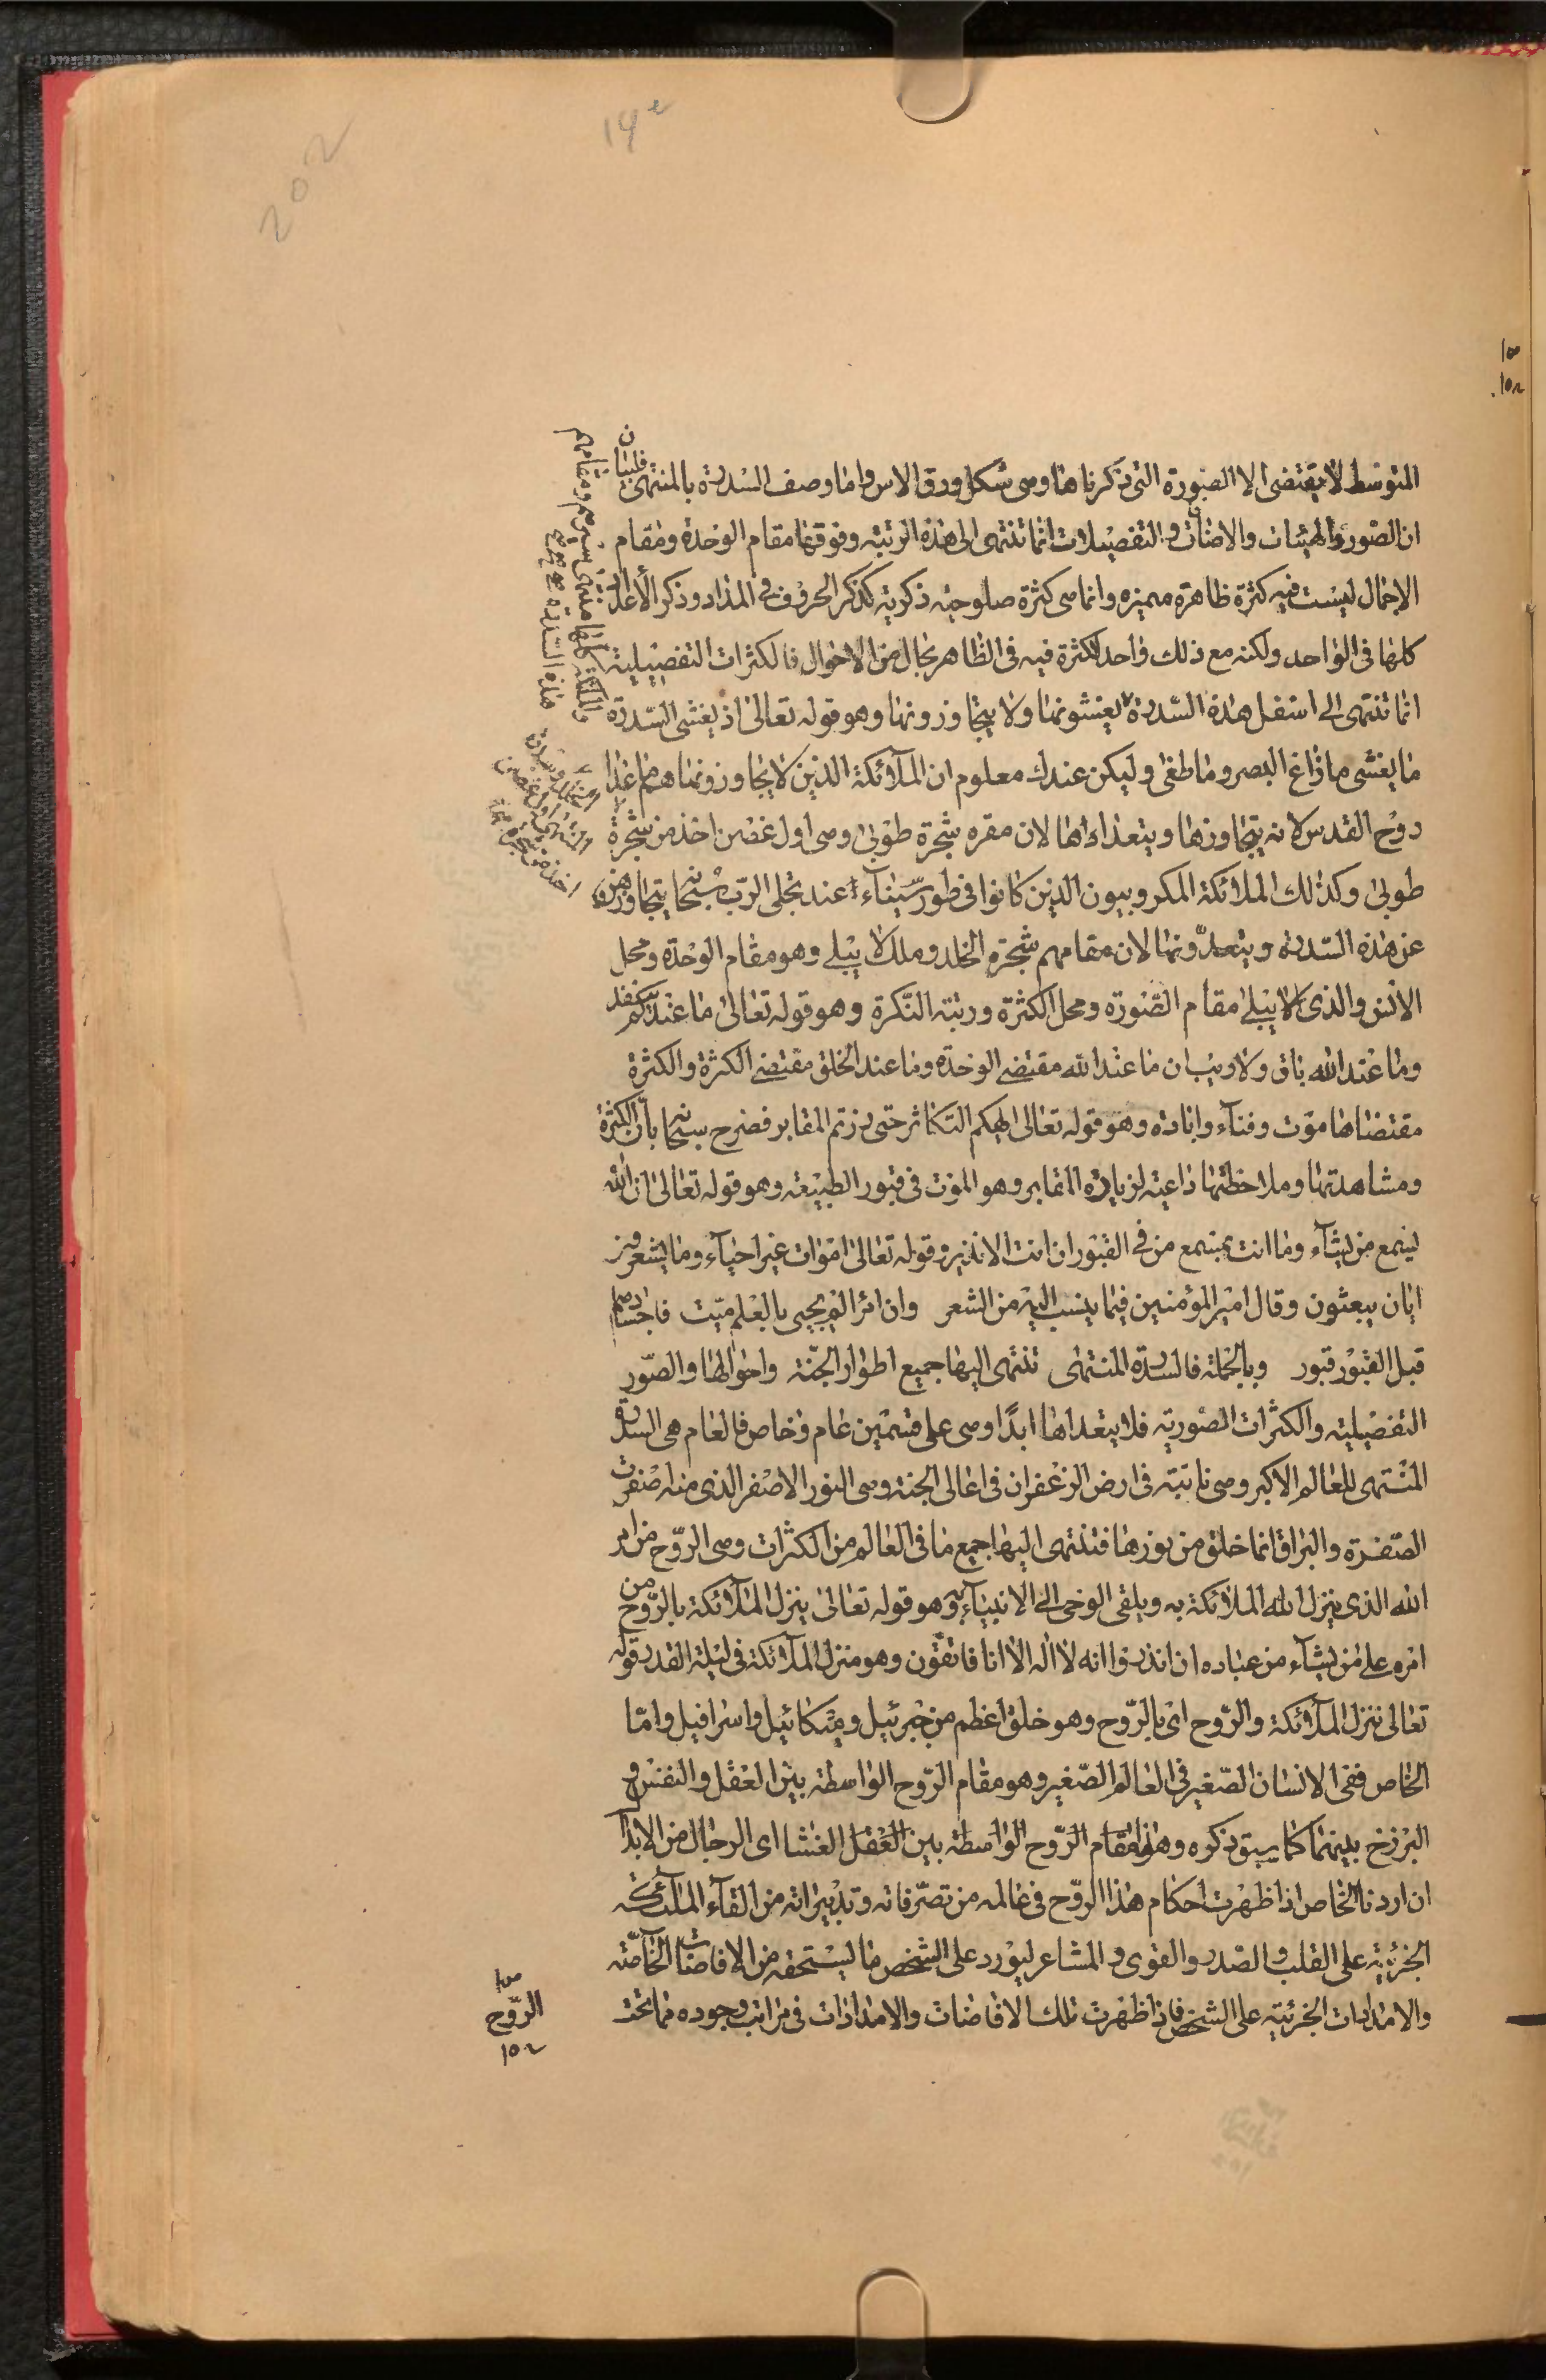 المتوسط لا يقتضى الا الصورة التى ذكرناها وهى شكل ورق الاس واما وصف السدرة بالمنتهى فلبيان
ان الصور والهيئات والاضافات والتفصيلات انما تنتهى الى هذه الرتبة وفوقها مقام الوحدة ومقام
الاجمال ليست فيه كثرة ظاهرة مميزه وانما هى كثرة صلوحية ذكرية كذكر الحروف فى المداد وذكر الأعداد
كلها فى الواحد ولكنه مع ذلك واحد لاكثرة فيه فى الظاهر بحال من الاحوال فالكثرات التفصيلية
انما تنتهى الى اسفل هذه السدرة يغشونها ولا يتجاوزونها وهو قوله تعالى اذ يغشى السدرة
ما يغشى ما زاغ البصر وما طغى وليكن عندك معلوم ان الملآئكة الذين لا يتجاوزونها هم ما عدا
روح القدس لانه يتجاوزها ويتعداها لان مقره شجرة طوبى وهى اول غصن اخذ من شجرة
طوبى وكذلك الملائكة الكروبيون الذين كانوا فى طور سيناء عند تجلى الرب سبحانه يتجاوزون
عن هذه السدرة ويتعدونها لان مقامهم شجرة الخلد وملك لا يبلى وهو مقام الوحدة ومحل
الانس والذى لا يبلى مقام الصورة ومحل الكثرة ورتبة النكرة وهو قوله تعالى ما عندكم ينفد
وما عند الله باق ولا ريب ان ما عند الله مقتضى الوحدة وما عند الخلق مقتضى الكثرة والكثرة
مقتضاها موت وفناء وابادة وهو قوله تعالى الهيكم التكاثر حتى زرتم المقابر فصرح سبحانه بأن الكثرة
ومشاهدتها وملاحظتها داعية لزيارة المقابر وهو الموت فى قبور الطبيعة وهو قوله تعالى ان الله
يسمع من يشآء وما انت بمسمع من فى القبور ان انت الا نذير وقوله تعالى اموات غير احيآء وما يشعرون
ايان يبعثون وقال امير المؤمنين فيما ينسب اليه من الشعر وان امرا لم يحيى بالعلم ميت فاجسادهم
قبل القبور قبور وبالجملة فالسدرة المنتهى تنتهى اليها جميع اطوار الجنة واحوالها والصور
التفصيلية والكثرات الصورية فلا يتعداها ابدًا وهى على قسمين عام وخاص فالعام هى السدرة
المنتهى للعالم الاكبر وهى نابتة فى ارض الزعفران فى اعالى الجنة وهى النور الاصفر الذى منه اصفرت
الصفرة والبراق انما خلق من نورها فتنتهى اليها جميع ما فى العالم من الكثرات وهى الروح من امر
الله الذى ينزل الله الملائكة به ويلقى الوحى الى الانبيآء به وهو قوله تعالى ينزل الملآئكة بالروح من
امره على من يشآء من عباده ان انذروا انه لا اله الا انا فاتقون وهو منزل الملآئكة فى ليلة القدر قوله
تعالى تنزل الملآئكة والروح اى بالروح وهو خلق اعظم من جبرئيل وميكائيل واسرافيل واما
الخاص ففى الانسان الصغير فى العالم الصغير وهو مقام الروح الواسطة بين العقل والنفس و
البرزخ بينهما كما سبق ذكره وهذا مقام الروح الواسطة بين العقل
ان اردنا الخاص اذا ظهرت احكام هذا الروح فى عالمه من تصرفاته وتدبيراته من القآء الملآئكة
الجزئية على القلب والصدر والقوى والمشاعر ليورد على الشخص ما يستحقه من الافاضات الخاصة
والامدادات الجزئية على الشخص فاذا ظهرت تلك الافاضات والامدادات فى مراتب وجوده مما تحت
الروح